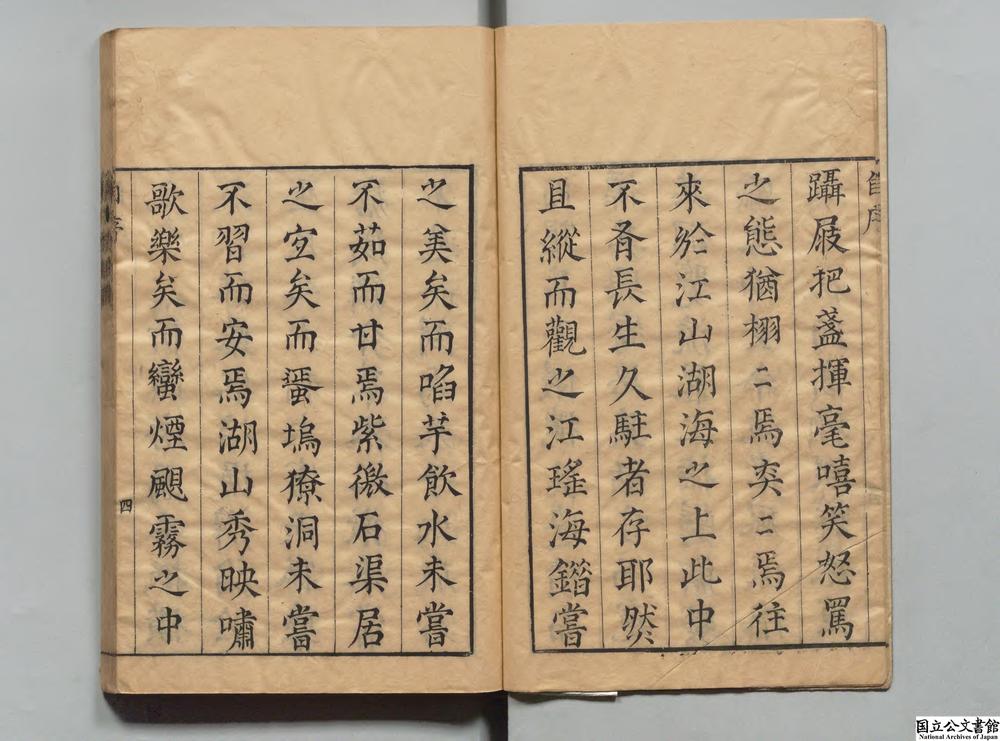 自序
躡屐把盞揮毫嘻笑怒罵
之態猶栩二焉奕二焉徃
來於江山湖海之上此中
不有長生久駐者存耶然
且縱而觀之江瑤海錯嘗
之美矣而啗芋飲水未嘗
不茹而甘焉紫微石渠居
之宜矣而蜑塢獠洞未嘗
不習而安焉湖山秀映嘯
歌樂矣而蠻煙颶霧之中
四
国立公文書館
National Archives of Japan